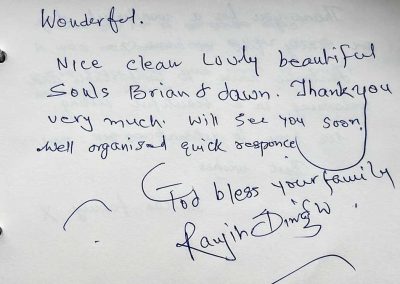 Wonderful.
Nice clean Lovly beautiful
Souls Brian & dawn. Thank you
very much. Will See you soon.
Well organised quick responce
God bless your family